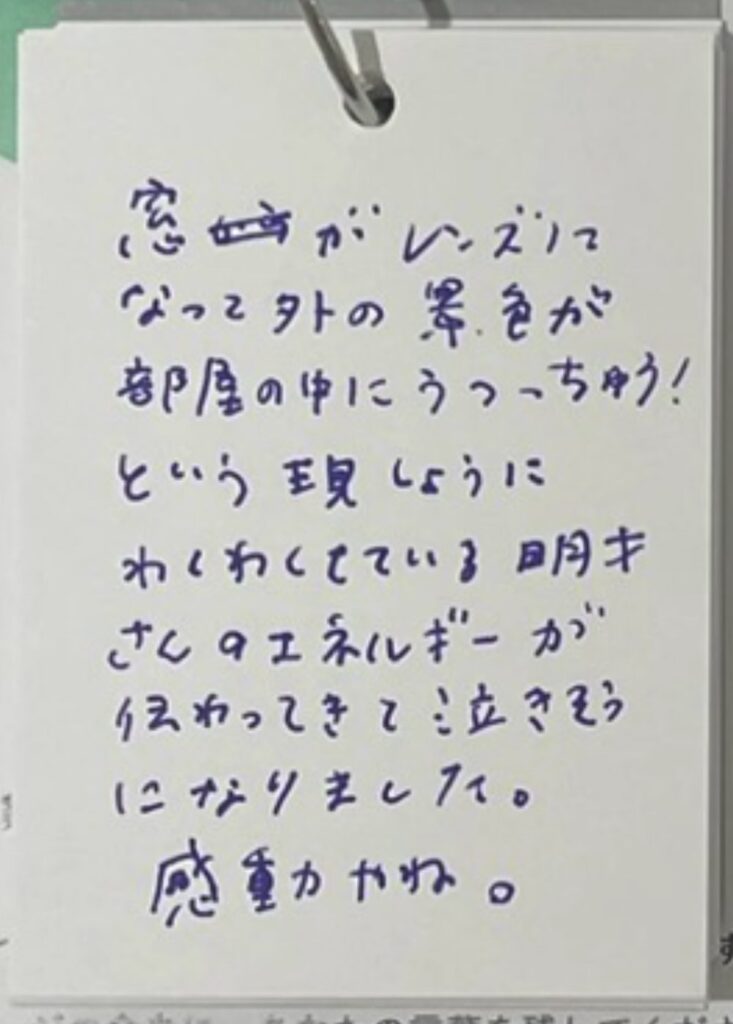 窓がレンズに
なって外の景色が
部屋の中にうつっちゅう!
という現しょうに
わくわくせている明才
さんのエネルギーが
伝わってきて泣きそう
になりました。
感動やね。